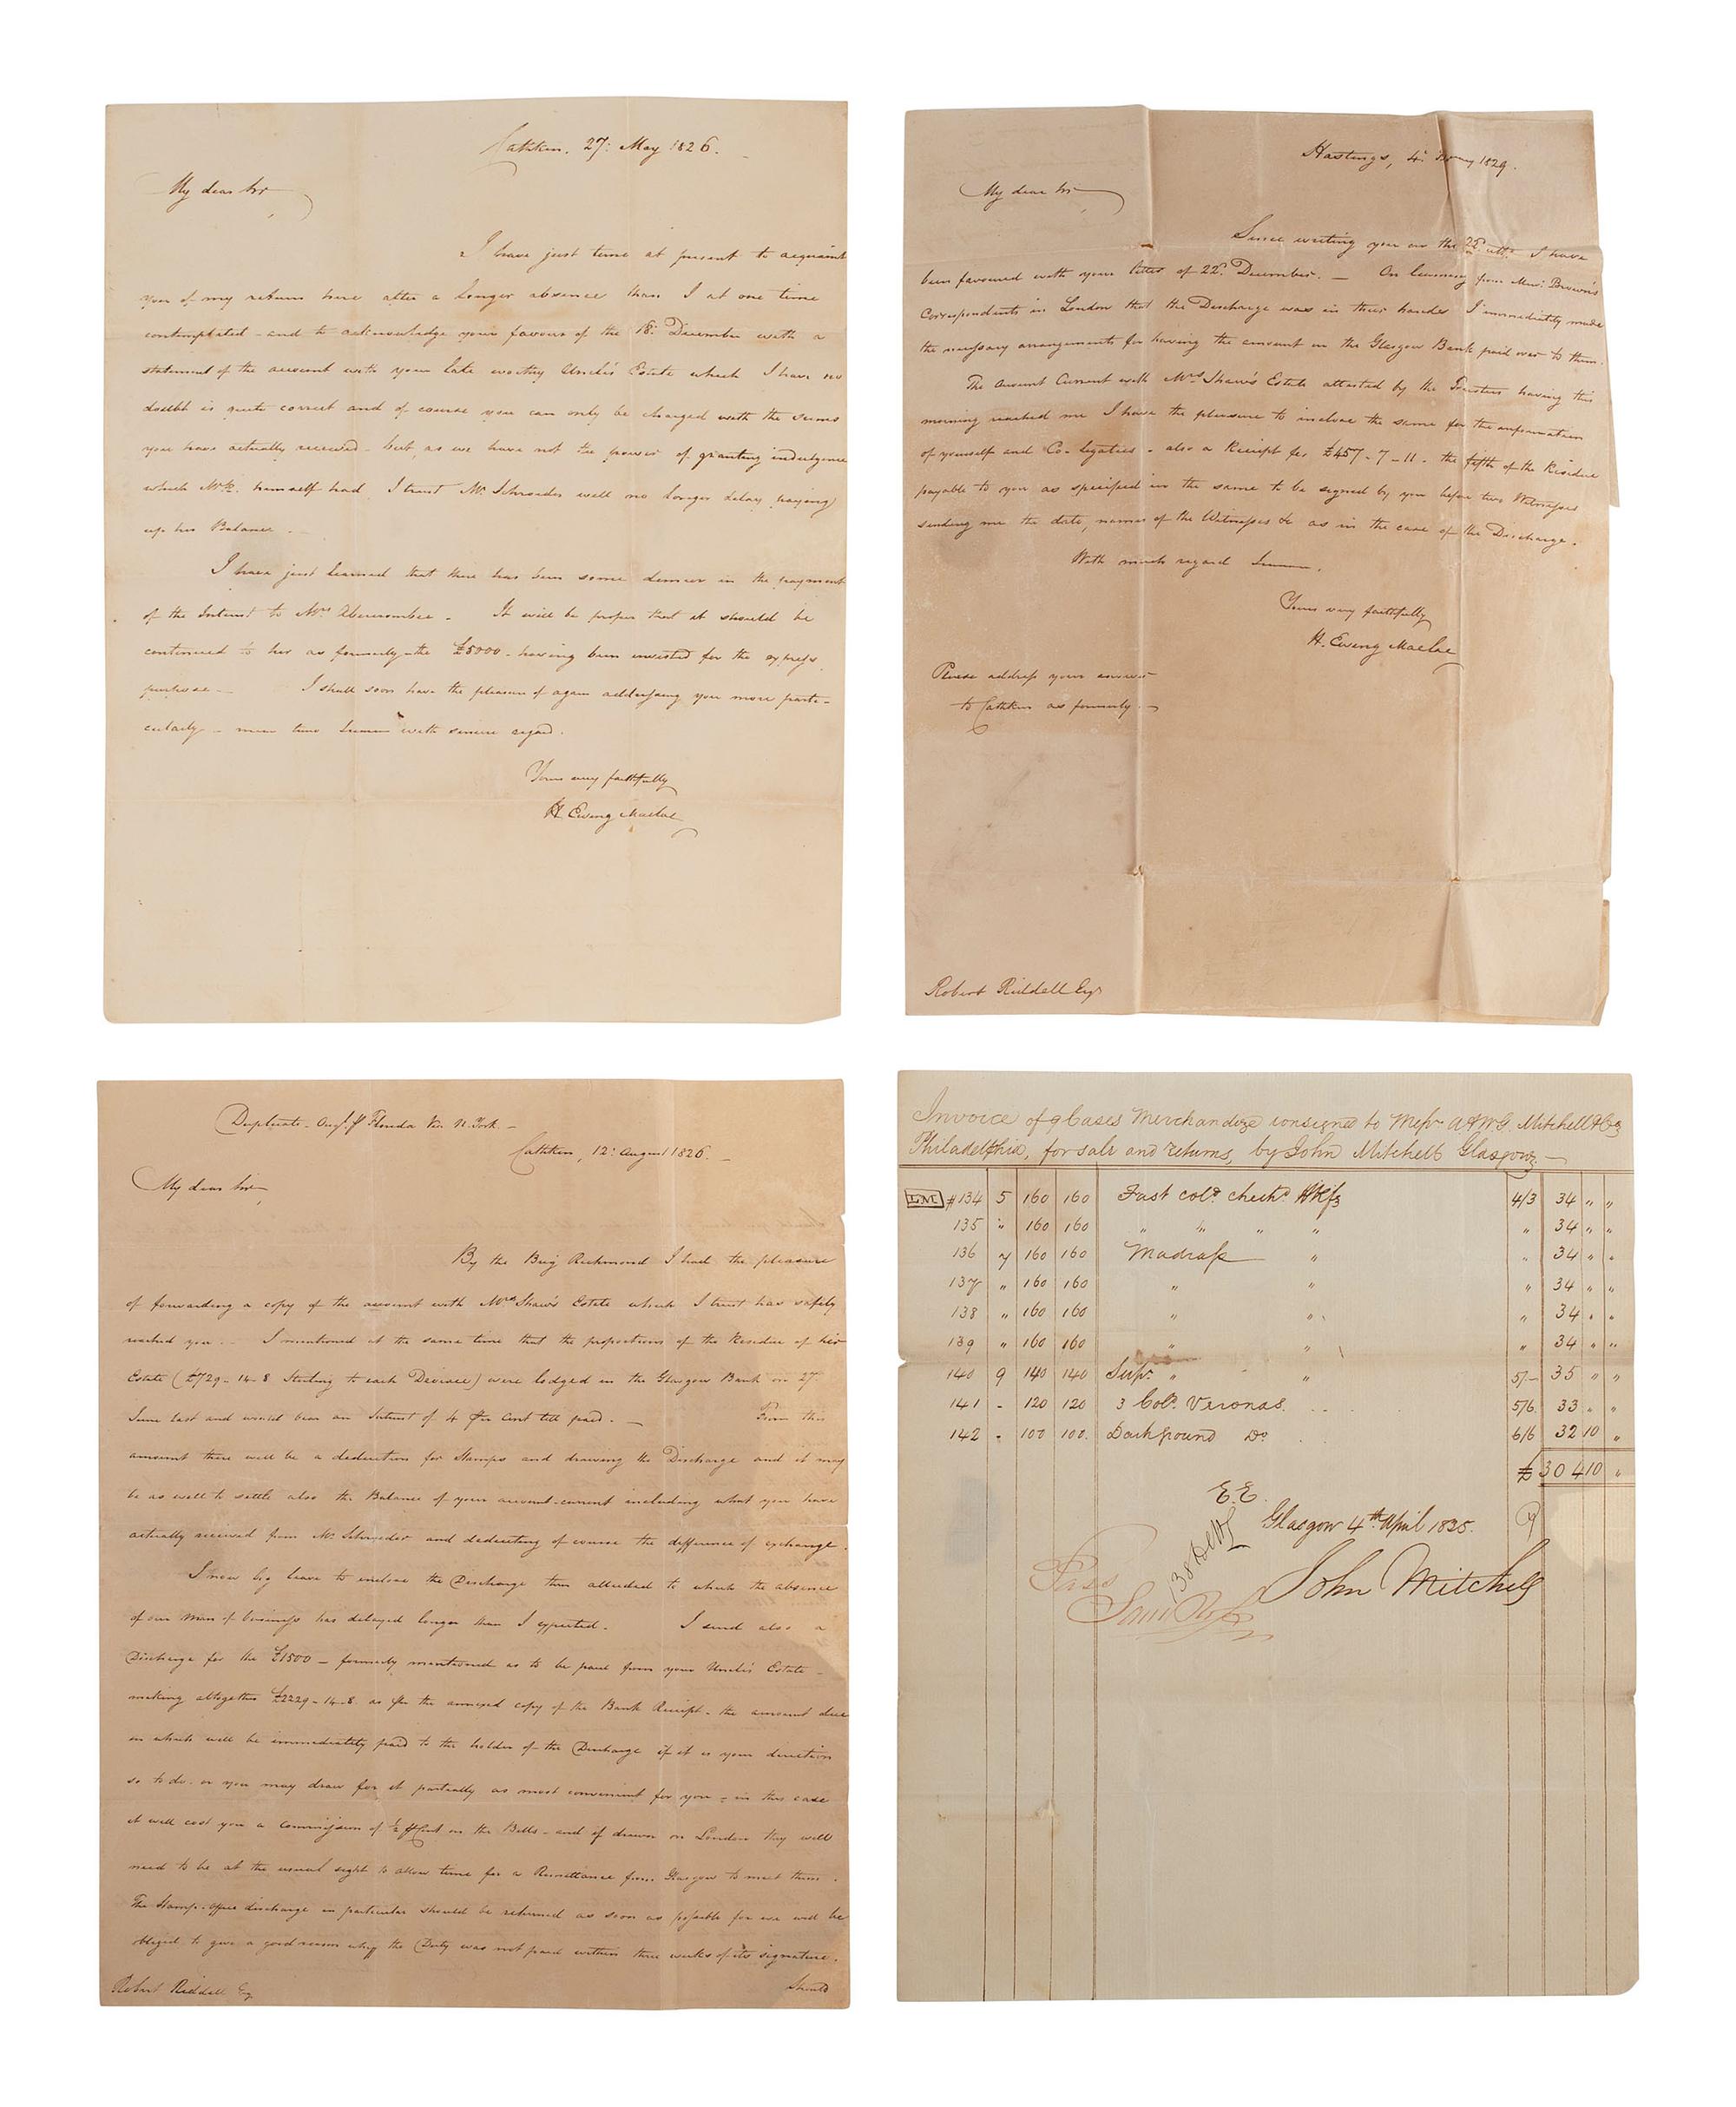 Cathkin, 27: May 1826.
My dear Sir
I have just time at present to acquaint
you of my return here after a longer absence than I at one time
contemplated - and to acknowledge your favour of the 18: December with a
statement of the account with your late worthy Uncle's Estate which I have no
doubt is quite correct and of course you can only be charged with the sums
you have actually received - but, as we have not the power of granting indulgence
which Mr R. himself had, I trust Mr. Schroeder will no longer delay paying
up his Balance. -
I have just learned that there has been some demur in the payment
of the Interest to Mrs Abercrombie - It will be proper that it should be
continued to her as formerly - the £5000 - having been invested for the express
purpose - I shall soon have the pleasure of again addressing you more parti-
cularly - mean time I remain with sincere regard.
Yours very faithfully
H. Ewing Maclae
Hastings, 4: 1829.
My dear Sir
Since writing you on the 22d ulto. I have
been favoured with your letter of 22d. December. - On learning from Messrs Brown's
Correspondents in London that the Discharge was in their hands I immediately made
the necessary arrangements for having the amount in the Glasgow Bank paid over to them.
The Account Current with Mrs Shaw's Estate attested by the Trustees having this
morning reached me I have the pleasure to inclose the same for the information
of yourself and Co-legatees - also a Receipt for £457-7-11 - the fifth of the Residue
payable to you as specified in the same to be signed by you before two Witnesses
sending me the date, names of the Witnesses &c as in the case of the Discharge.
With much regard I remain,
Yours very faithfully
H. Ewing Maclae
Please address your answer
to Cathkin as formerly -
Robert Riddell Esqr
Duplicate - Origl. p Florida via N. York -
Cathkin, 12: August 1826. -
My dear Sir
By the Brig Richmond I had the pleasure
of forwarding a copy of the account with Mrs Shaw's Estate which I trust has safely
reached you. - I mentioned at the same time that the proportions of the Residue of her
Estate (£729-14-8 Sterling to each Devisee) were lodged in the Glasgow Bank on 27
June last and would bear an Interest of 4 p Cent till paid. - From this
amount there will be a deduction for Stamps and drawing the Discharge and it may
be as well to settle also the Balance of your account-current including what you have
actually received from Mr Schroeder and deducting of course the difference of exchange.
I now beg leave to enclose the Discharge then alluded to which the absence
of our Man of business has delayed longer than I expected. - I send also a
Discharge for the £1500 - formerly mentioned as to be paid from your Uncle's Estate -
making altogether £2229-14-8 as p the annexed copy of the Bank Receipt - the amount due
on which will be immediately paid to the holder of the Discharge if it is your direction
so to do - or you may draw for it partially as most convenient for you - in this case
it will cost you a Commission of ½ p Cent on the Bills - and if drawn on London they will
need to be at the usual sight to allow time for a Remittance from Glasgow to meet them.
The Stamp-Office discharge in particular should be returned as soon as possible for we will be
obliged to give a good reason why the Duty was not paid within three weeks of its signature.
Robert Riddell Esq Should
Invoice of 9 Cases Merchandize consigned to Messrs A & W G. Mitchell & Co
Philadelphia, for sale and returns, by John Mitchell Glasgow -
LM #134 5 160 160 Fast cold. checkd. Hkfs 4/3 34 " "
135 " 160 160 " " " " " 34 " "
136 7 160 160 Madrass " " 34 " "
137 " 160 160 " " " 34 " "
138 " 160 160 " " " 34 " "
139 " 160 160 " " " 34 " "
140 9 140 140 Supr. " " 5/- 35 " "
141 - 120 120 3 Cold. Veronas 5/6 33 " "
142 - 100 100 Darkground Do. 6/6 32 10 "
£ 304 10 "
E.E.
Glasgow 4th April 1825.
John Mitchell